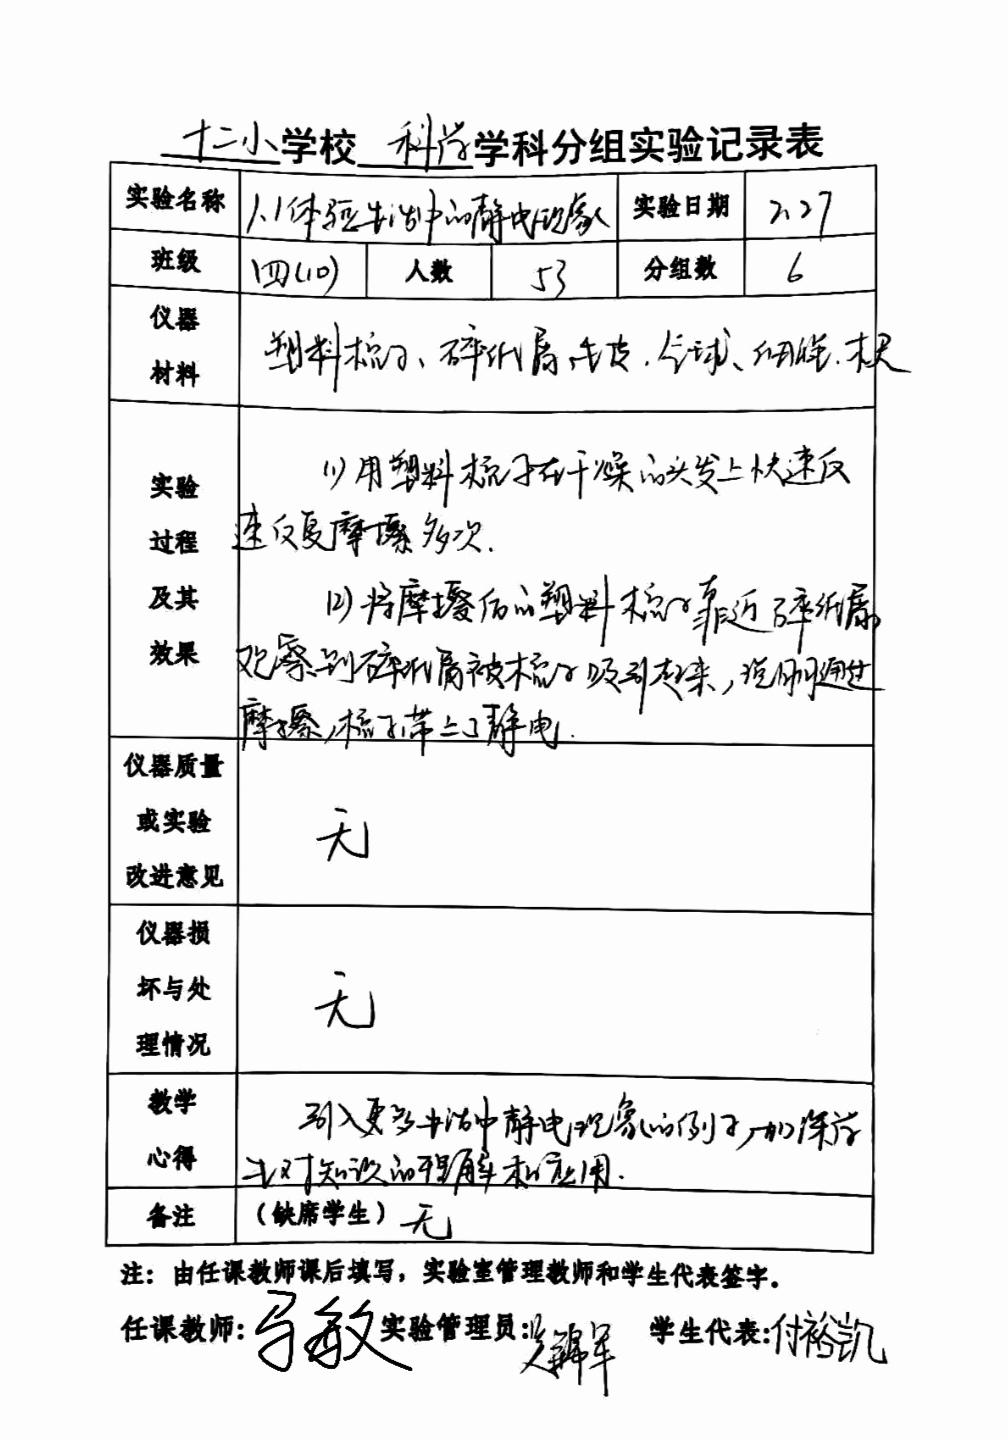 十二小学校 科学学科分组实验记录表
实验名称 1.1体验生活中的静电现象 实验日期 2.27
班级 四(10) 人数 53 分组数 6
仪器
材料
塑料梳子、碎纸屑、毛皮、气球、细绳、木尺
实验
过程
及其
效果
(1)用塑料梳子在干燥的头发上快速反
速反复摩擦多次.
(2)将摩擦后的塑料梳子靠近碎纸屑,
观察到碎纸屑被梳子吸引起来,说明通过
摩擦,梳子带上了静电.
仪器质量
或实验
改进意见
无
仪器损
坏与处
理情况
无
教学
心得
引入更多生活中静电现象的例子,加深学
生对知识的理解和应用.
备注 (缺席学生) 无
注：由任课教师课后填写，实验室管理教师和学生代表签字。
任课教师:马敏 实验管理员: 学生代表:付裕凯